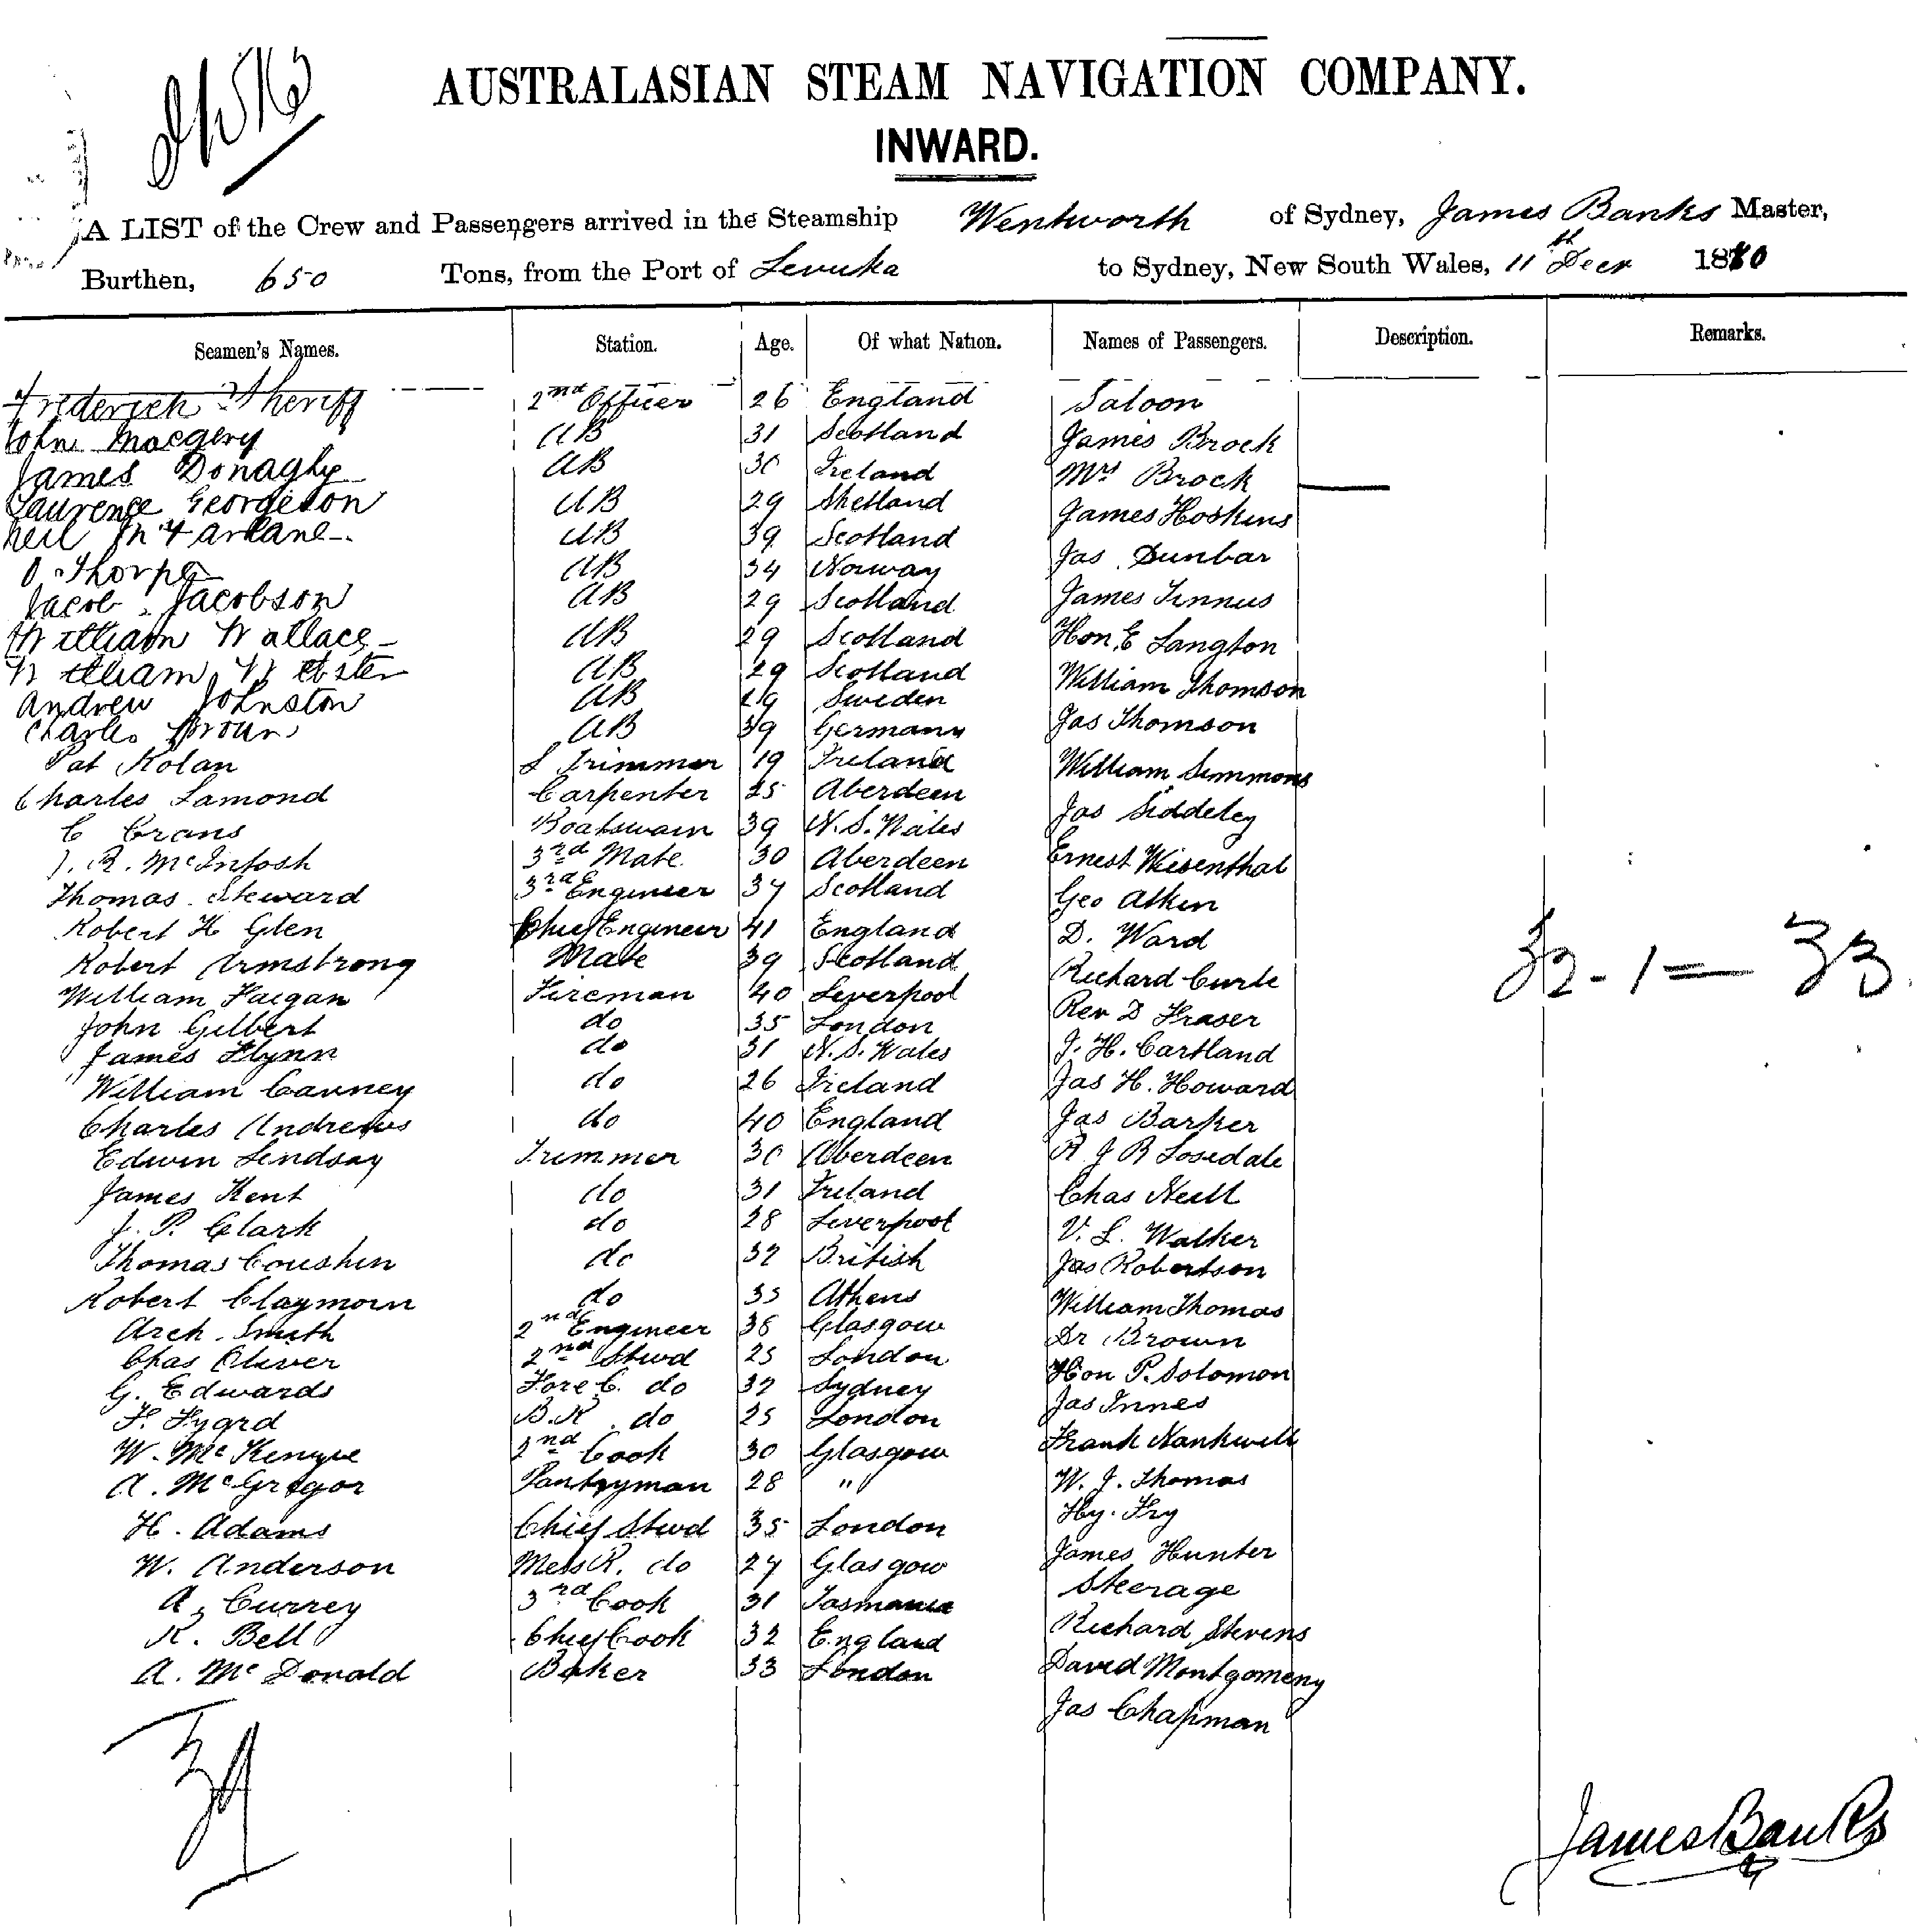 AUSTRALASIAN STEAM NAVIGATION COMPANY.
INWARD.
A LIST of the Crew and Passengers arrived in the Steamship Wentworth of Sydney, James Banks Master,
Burthen, 650 Tons, from the Port of Levuka to Sydney, New South Wales, 11th Decr 1880
Seamen's Names. Station. Age. Of what Nation. Names of Passengers. Description. Remarks.
Frederick Sheriff 2nd Officer 26 England Saloon
John Macgery AB 31 Scotland James Brock
James Donaghy AB 30 Ireland Mrs Brock
Laurence Georgeson AB 29 Shetland James Hoskins
Neil McFarlane AB 39 Scotland Jas Dunbar
O. Thorpe AB 34 Norway James Tinnus
Jacob Jacobson AB 29 Scotland Hon E Langton
William Wallace AB 29 Scotland William Thomson
William Webster AB 29 Scotland Jas Thomson
Andrew Johnston AB 29 Sweden William Simmons
Charles Brown AB 39 Germany Jas Siddeley
Pat Kolan S Trimmer 19 Ireland Ernest Wisenthal
Charles Lamond Carpenter 25 Aberdeen Geo Atkin
C Crans Boatswain 39 N.S. Wales D. Ward
J. R. McIntosh 3rd Mate 30 Aberdeen Richard Curle
Thomas Steward 3rd Engineer 37 Scotland Rev D Fraser
Robert H Glen Chief Engineer 41 England J. H. Cartland
Robert Armstrong Mate 39 Scotland Jas H. Howard
William Faigan Fireman 40 Liverpool Jas Barker
John Gilbert do 35 London R J B Losedale
James Flynn do 31 N.S. Wales Chas Neill
William Carney do 26 Ireland V. L. Walker
Charles Andrews do 40 England Jas Robertson
Edwin Lindsay Trimmer 30 Aberdeen William Thomas
James Kent do 31 Ireland Dr Brown
J. P. Clark do 28 Liverpool Hon P. Solomon
Thomas Coushin do 32 British Jas Innes
Robert Claymorn do 33 Athens Frank Nankwell
Arch. Smith 2nd Engineer 36 Glasgow W. J. Thomas
Chas Oliver 2nd Stwd 25 London Hy. Fry
G. Edwards Fore C. do 32 Sydney James Hunter
F. Fygrd B.R. do 25 London Steerage
W. McKenyie 2nd Cook 30 Glasgow Richard Stevens
A. McGregor Pantryman 28 " David Montgomery
H. Adams Chief Stwd 35 London Jas Chapman
W. Anderson Mess R. do 27 Glasgow
A. Currey 3rd Cook 31 Tasmania
R. Bell Chief Cook 32 England
A. McDonald Baker 33 London
32 - 1 = 33
39
James Banks